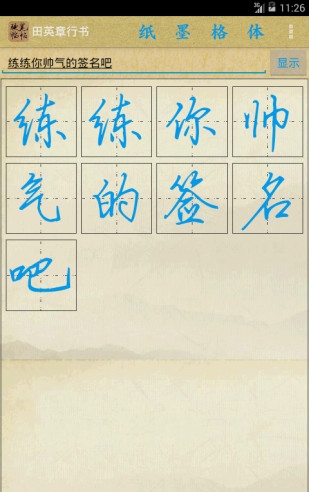 3G 11:26
硬笔
临帖
田英章行书 纸 墨 格 体
练练你帅气的签名吧 显示
练 练 你 帅
气 的 签 名
吧